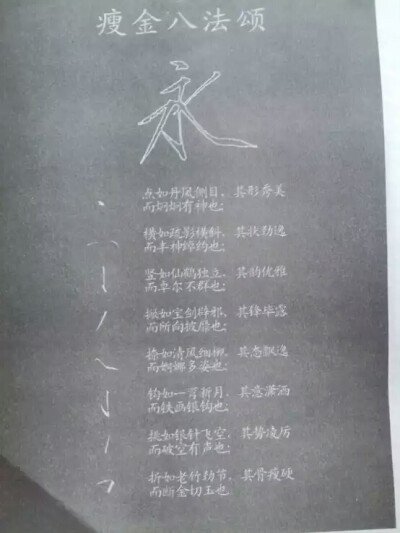 瘦金八法颂
永
点如丹凤侧目，其形秀美
而炯炯有神也；
横如疏影横斜，其状劲逸
而丰神绰约也；
竖如仙鹤独立，其韵优雅
而卓尔不群也；
撇如宝剑辟邪，其锋毕露
而所向披靡也；
捺如清风拥柳，其态飘逸
而婀娜多姿也；
钩如一弯新月，其意潇洒
而铁画银钩也；
挑如银针飞空，其势凌厉
而破空有声也；
折如老竹劲节，其骨瘦硬
而断金切玉也